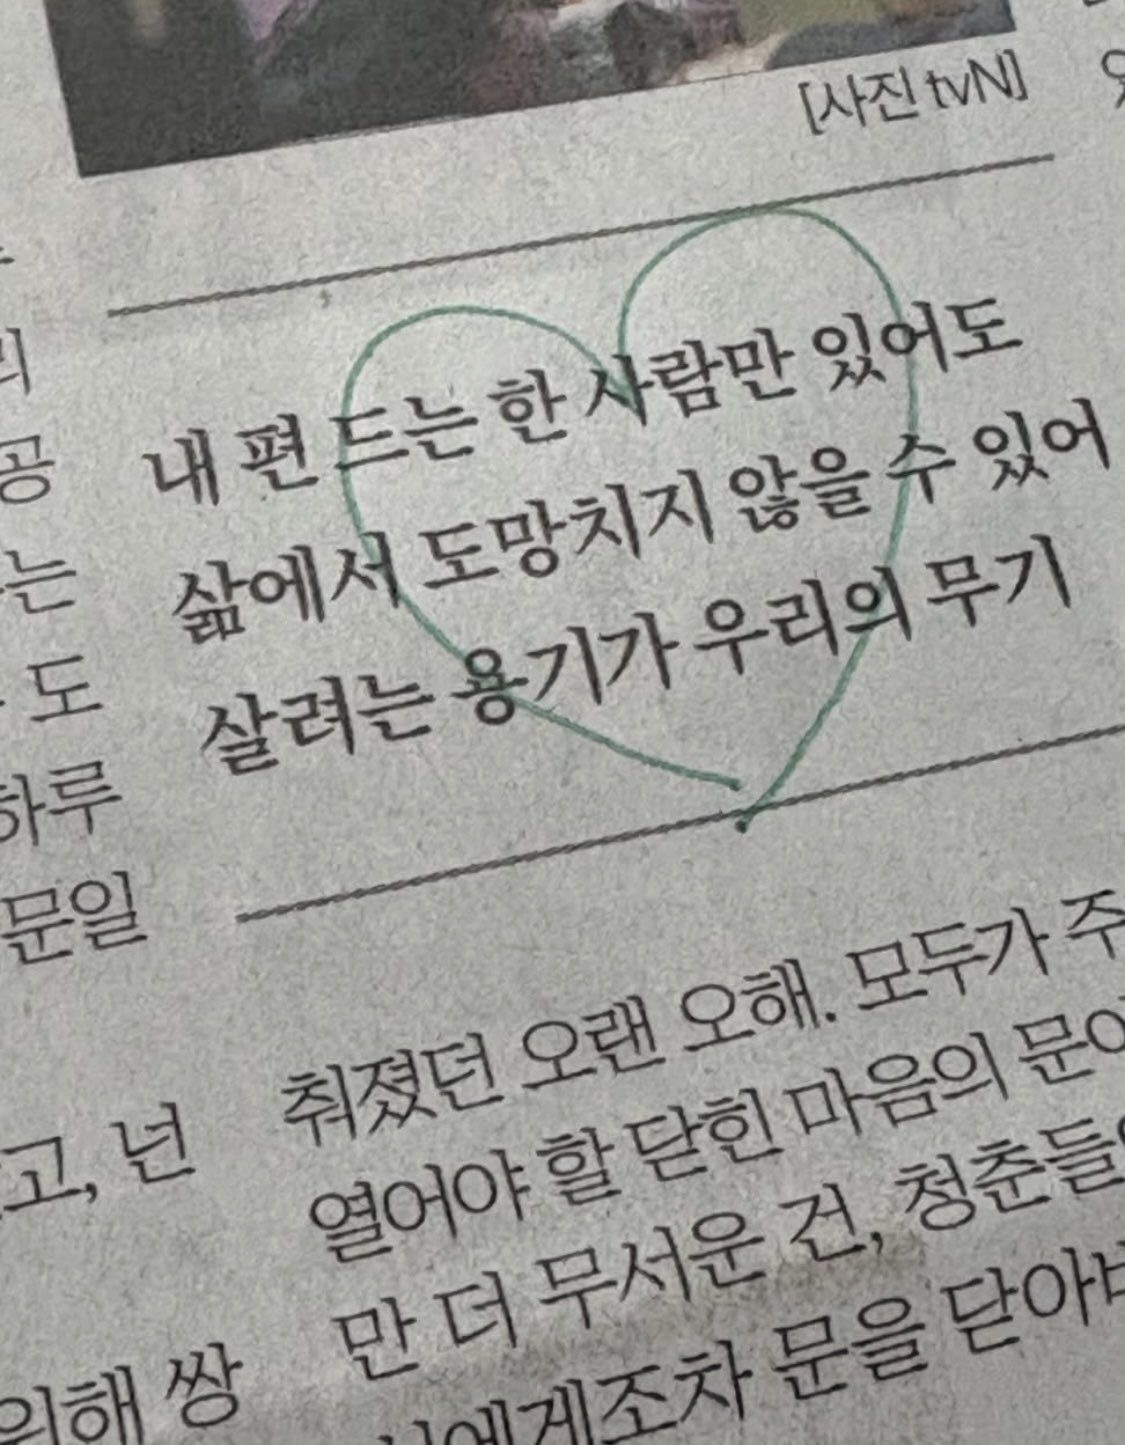 [사진 tvN]
내 편 드는 한 사람만 있어도
삶에서 도망치지 않을 수 있어
살려는 용기가 우리의 무기
리
공
는
도
하루
문일
고, 넌
위해 쌍
춰졌던 오랜 오해. 모두가 주
열어야 할 닫힌 마음의 문
만 더 무서운 건, 청춘들
에게조차 문을 닫아